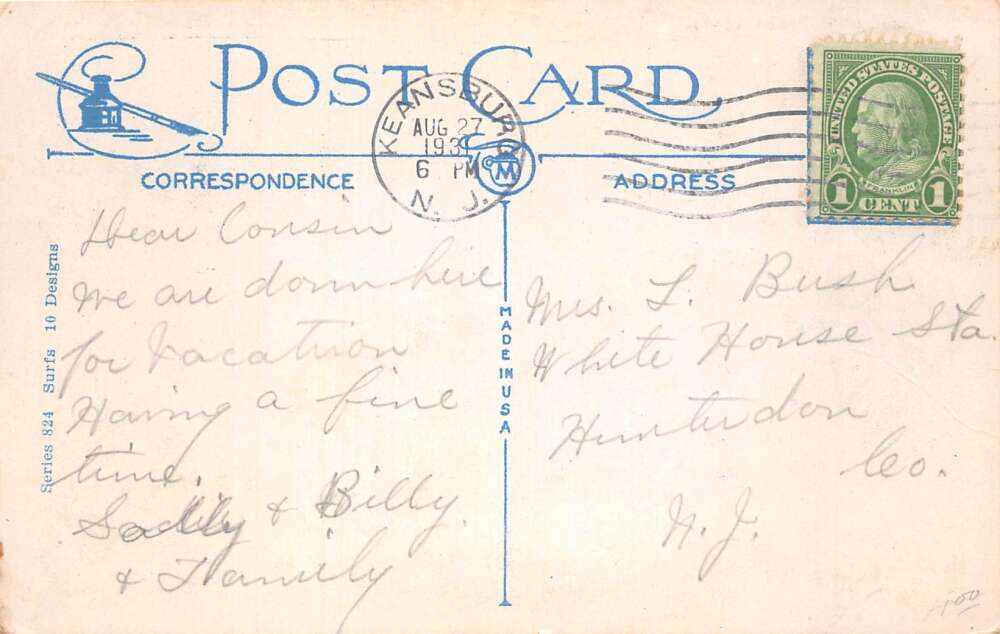 POST CARD
KEANSBURG
AUG 27
1931
6 PM
N. J.
UNITED STATES POSTAGE
FRANKLIN
1 CENT 1
M
CORRESPONDENCE
ADDRESS
Series 824 Surfs 10 Designs
MADE IN USA
Dear Cousin
We are down here
for Vacation
Having a fine
time.
& Billy.
& Family
Mrs. L. Bush
White House Sta.
Hunterdon
Co.
N. J.